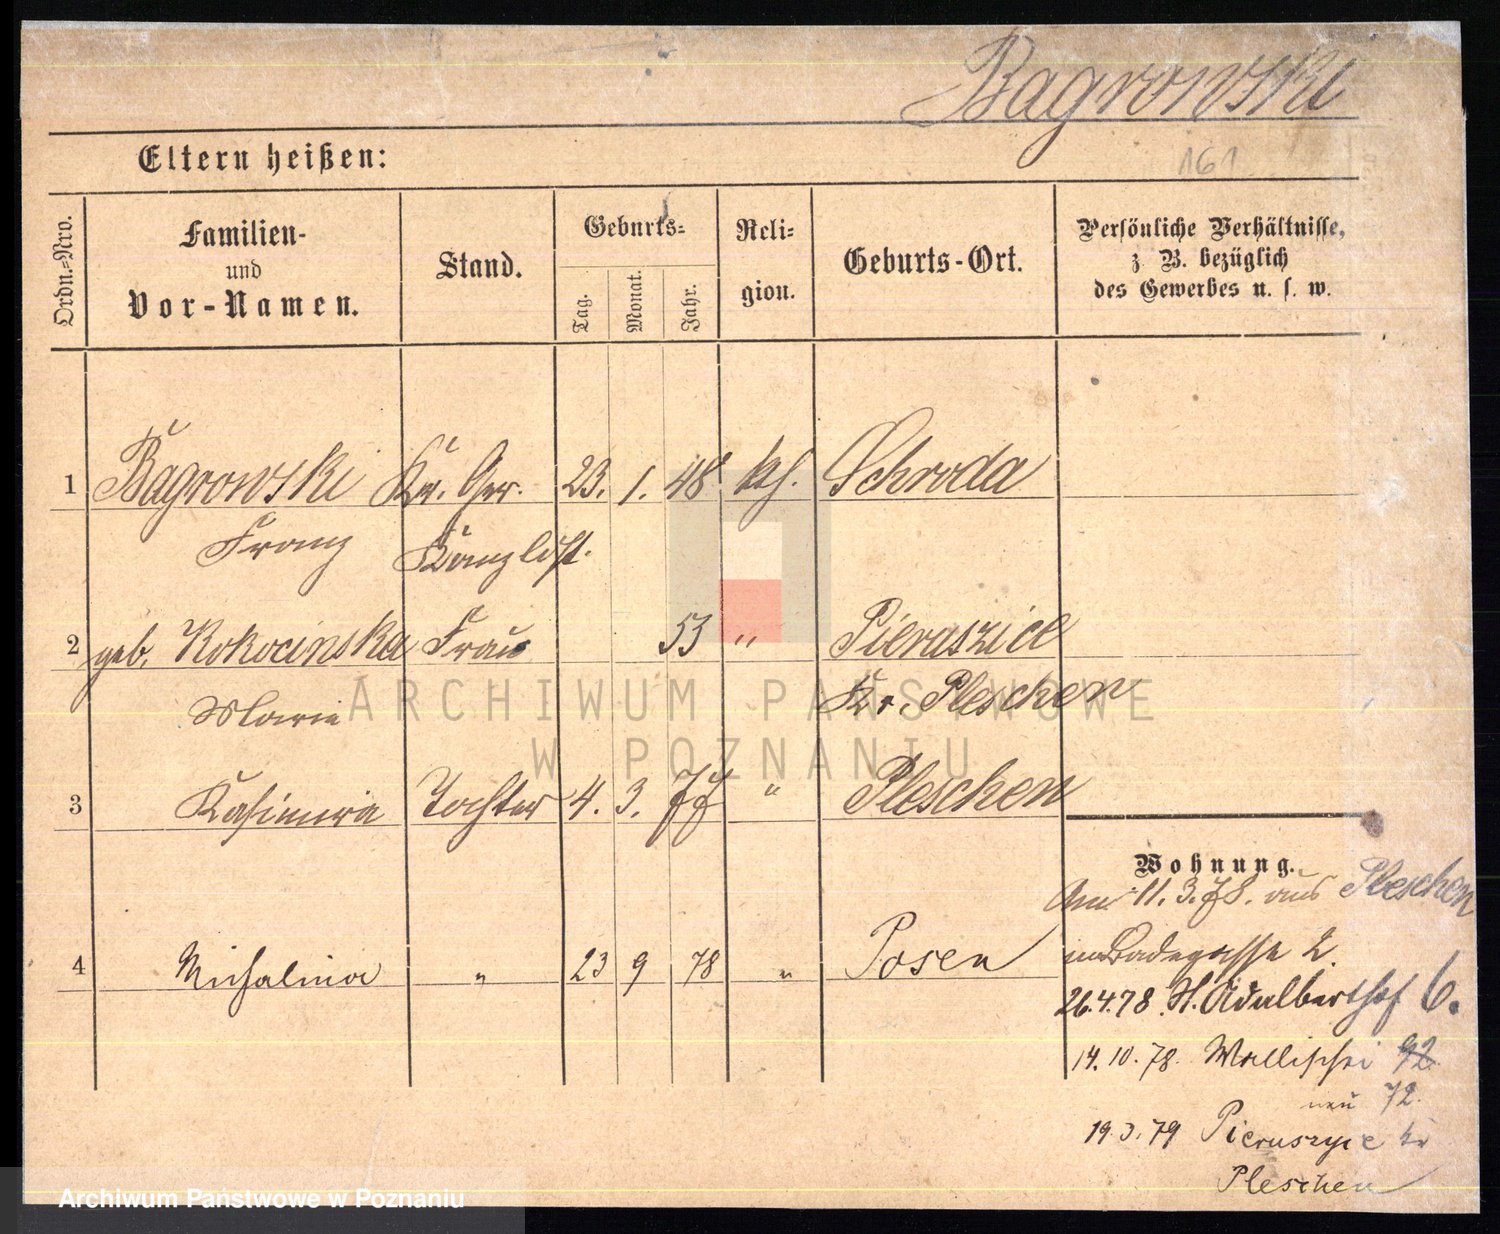 Bagrowski
Eltern heißen:
161
Ordn.-Nro.
Familien-
und
Vor-Namen.
Stand.
Geburts-
Tag.
Monat.
Jahr.
Reli-
gion.
Geburts-Ort.
Persönliche Verhältnisse,
z. B. bezüglich
des Gewerbes u. s. w.
1 Bagrowski Kr. Ger. 23. 1. 48 kth. Schroda
Franz Kanzlist.
2 geb. Kokocinska Frau 53 " Pieruszice
Marie Kr. Pleschen
3 Kasimira Tochter 4. 3. 77 " Pleschen
Wohnung.
Am 11.3.78. aus Pleschen
Badegasse 2.
4 Michalina " 23 9 78 " Posen
26.4.78 St. Adalberthof 6.
14.10.78. Wallischei 92
neu 72.
19.3.79 Pieruszyce Kr
Pleschen
ARCHIWUM PAŃSTWOWE
W POZNANIU
Archiwum Państwowe w Poznaniu